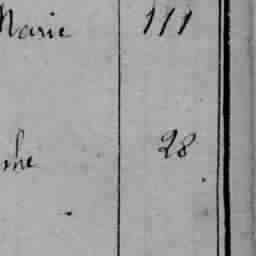 Marie 111
he 28